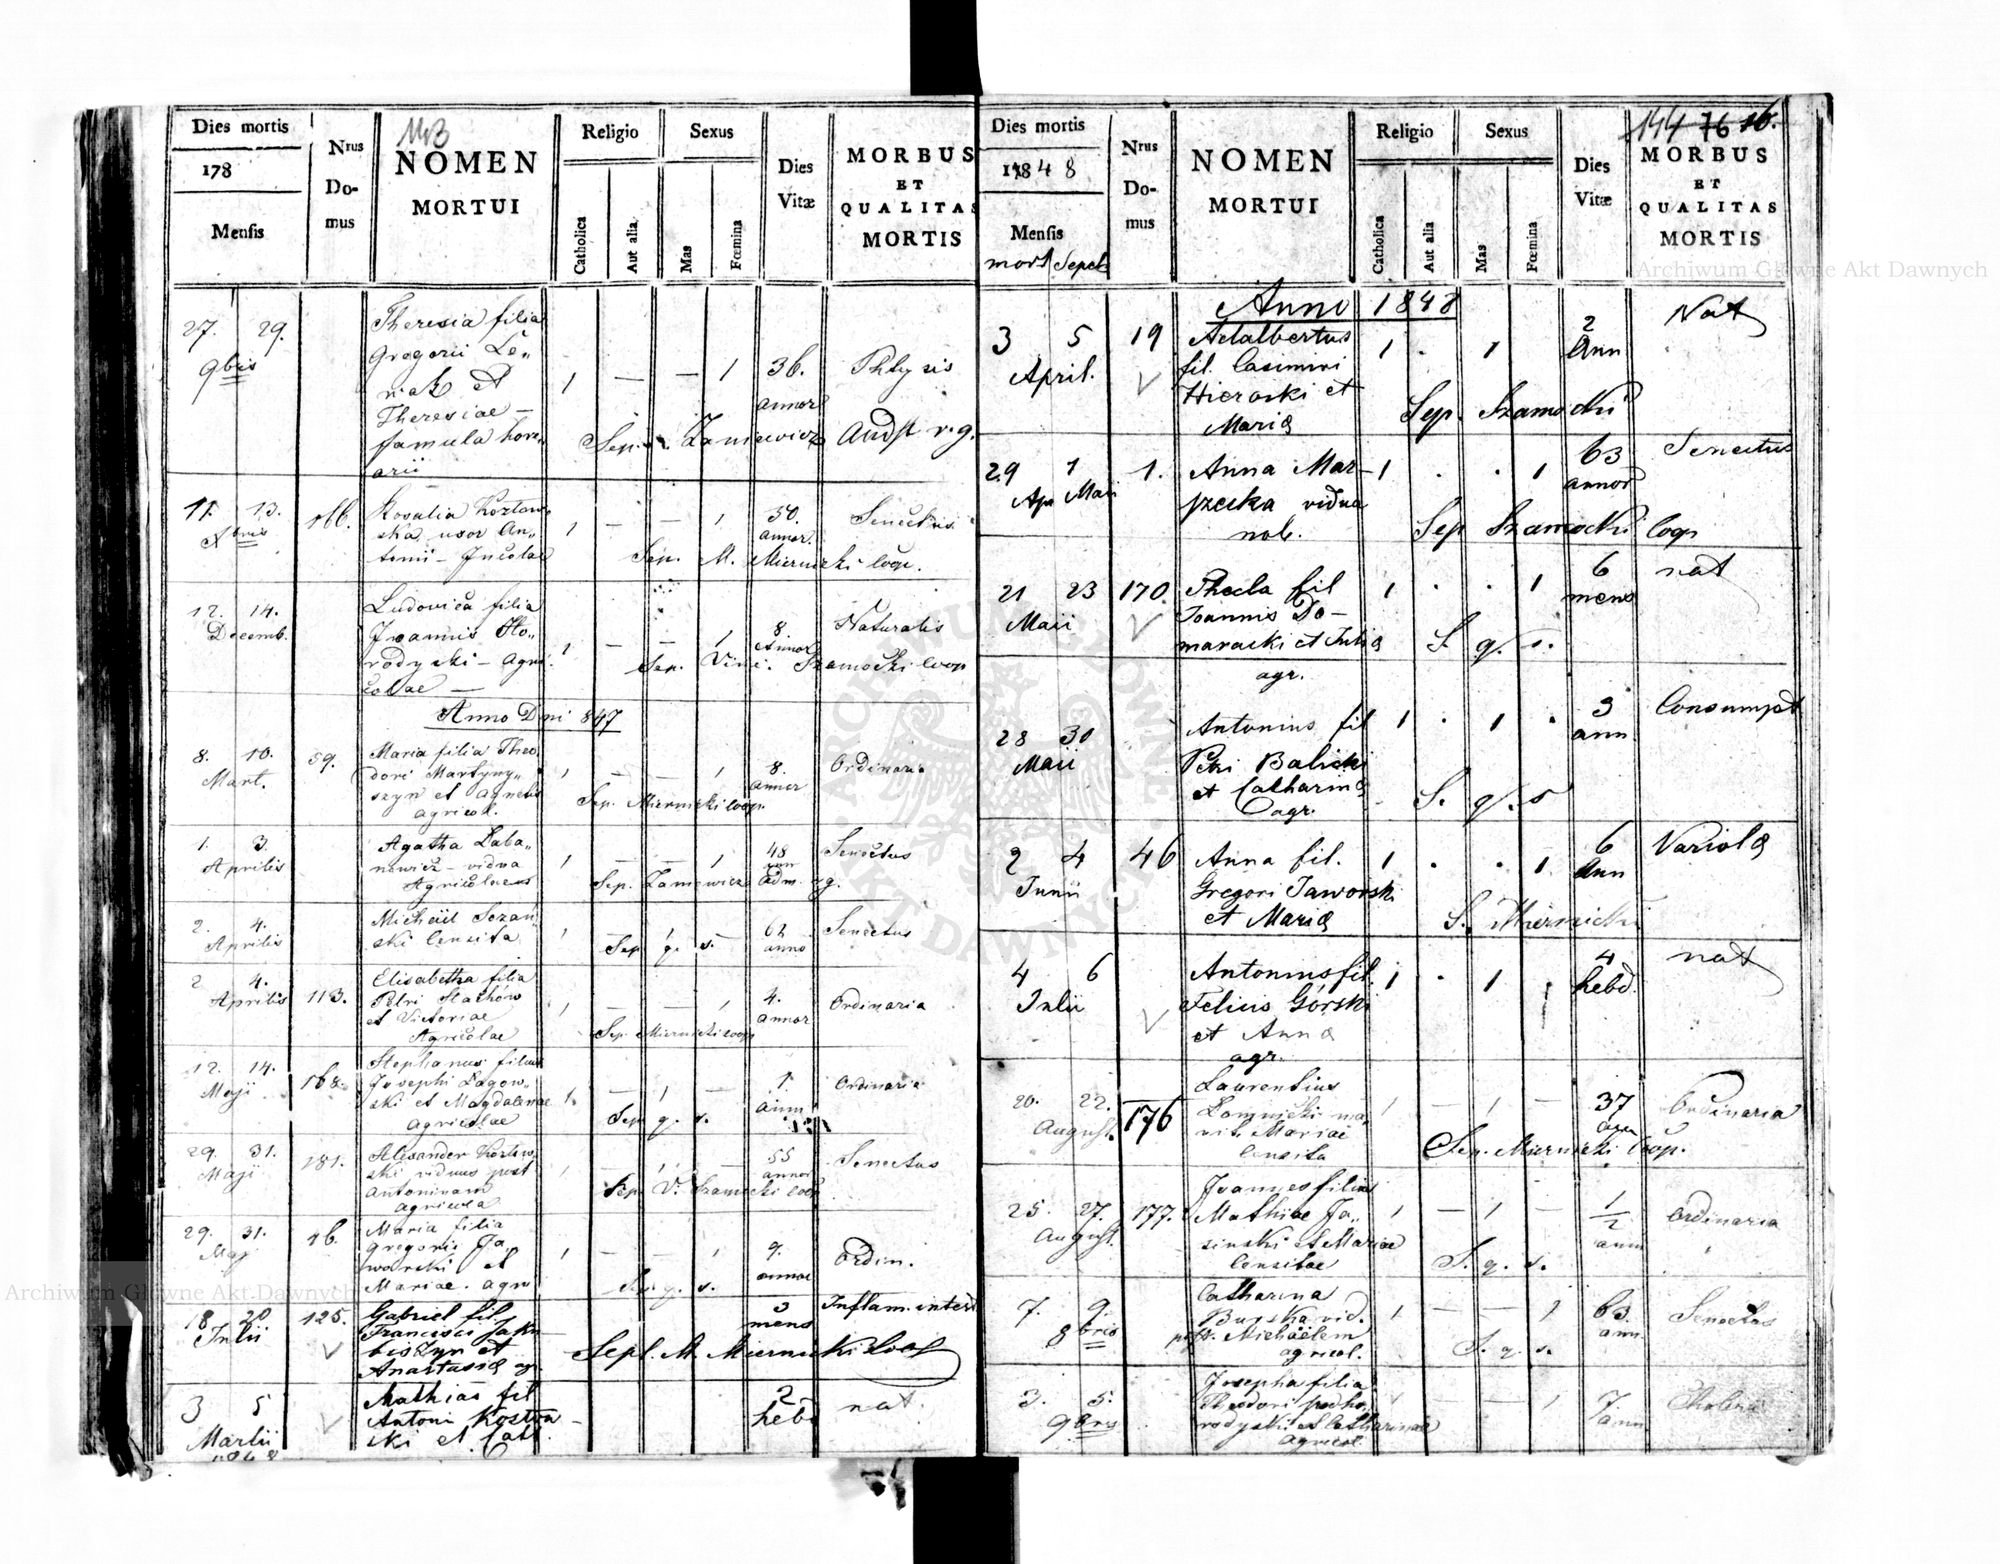 143
Dies mortis
178
Mensis
Nrus
Do-
mus
NOMEN
MORTUI
Religio
Catholica
Aut alia
Sexus
Mas
Fœmina
Dies
Vitæ
MORBUS
ET
QUALITAS
MORTIS
27. 29.
9bris
Theresia filia
Gregorii Le„
niak et
Theresiae –
famula hore„
arii
1 — — 1
36.
annor
Phtysis
Sep. Zaniewicz Andst r.g.
11. 13.
Xbris
166.
Rosalia Kozlow„
ska uxor An„
tonii – Incolae
1 — — 1
50.
annor.
Senectus
Sep. M. Miernicki Coop.
12. 14.
Decemb.
Ludovica filia
Joannis Ho„
rodyski – Agri„
colae —
1 — — 1
8.
Annor
Naturalis
Sep. Vinc. Szamocki Coop
Anno Dni 847
8. 10.
Mart.
59.
Maria filia Theo„
dori Martyny„
szyn et Agnetis
agricol.
1 — — 1
8.
annor
Ordinaria
Sep. Miernicki Coop.
1. 3.
Aprilis
Agatha Laba„
nowicz – vidua
Agricolaeus
1 — — 1
48
ann
Senectus
Sep. Zaniewicz Adm. r.g.
2. 4.
Aprilis
Michäel Sozań„
ski Censita
1 — 1 —
62
anno
Senectus
Sep q. s.
2 4.
Aprilis
113.
Elisabetha filia
Petri Stachów
et Victoriae
Agricolae
1 — — 1
4.
annor
Ordinaria
Sep. Miernicki Coop
12. 14.
Maji
168.
Stephanus filius
Josephi Lagow„
ski et Magdalenae
agricolae
1. — 1 —
1.
anni
Ordinaria
Sep q. s.
29. 31.
Maji
181.
Alexander Kozlow„
ski viduus post
Antoninam
agricola
1 — 1 —
55
annor
Senectus
Sep V. Szamocki Coop
29. 31.
Maj
46.
Maria filia
Gregorii Ja„
worski et
Mariae. agri
1 — — 1
9.
annor
Ordin.
Sep. q. s.
18 20
Julii
125.
Gabriel fil.
Francisci Jaku
biszyn et
Anastasiæ agr.
3
mens
Inflam. intest
Sept. M. Miernicki Coop
3 5
Martii
1848
Mathias fil
Antoni Kostru
ski et Cath.
2
hebd
nat.
144 76 16.
Dies mortis
1848
Mensis
mort Sepel
Nrus
Do-
mus
NOMEN
MORTUI
Religio
Catholica
Aut alia
Sexus
Mas
Fœmina
Dies
Vitæ
MORBUS
ET
QUALITAS
MORTIS
Anno 1848
3 5
April.
19
Adalbertus
fil. Casimiri
Hieroski et
Mariæ
1 . 1
2
Ann
Nat
Sep. Szamocki
29 1
Apr Maii
1.
Anna Mar–
szeska vidua
nob.
1 . . 1
63
annor
Senectus
Sep Szamocki Coop
21 23
Maii
170.
Thecla fil
Joannis Do–
maracki et Juliæ
agr.
1 . . 1
6
mens
nat
S. q. s.
28 30
Maii
Antonius fil
Petri Balicki
et Catharinæ
agr.
1 . 1 .
3
ann
Consumpt
S. q. s
2 4
Junii
46
Anna fil.
Gregori Jaworski
et Mariæ
1 . . 1.
6
Ann
Variolæ
S. Miernicki
4 6
Julii
Antonius fil.
Felicis Górski
et Annæ
agr.
1 . 1 .
4
hebd.
nat
20. 22.
August.
176
Laurentius
Lomnicki ma„
rit. Mariae
Censita
1 — 1 —
37
Ordinaria
Sep. Miernicki Coop.
25. 27.
August.
177.
Joannes filius
Mathiae Ja„
sinski et Mariae
Censitae
1 — 1 —
1/2
anni
Ordinaria
S. q. s.
7. 9.
8bris
Catharina
Burska vid.
post. Michäelem
agricol.
1 — — 1
63.
ann.
Senectus
S. q. s.
3. 5.
9bris
Josepha filia
Theodori podho„
rodyski et Catharinae
agricol.
1 — — 1
7.
ann
Cholera
Archiwum Główne Akt Dawnych
Archiwum Główne Akt Dawnych
ARCHIWUM GŁÓWNE
AKT DAWNYCH